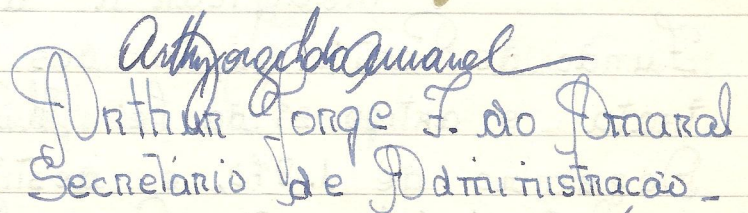 Arthur Jorge F. do Amaral
Arthur Jorge F. do Amaral
Secretário de Administração.